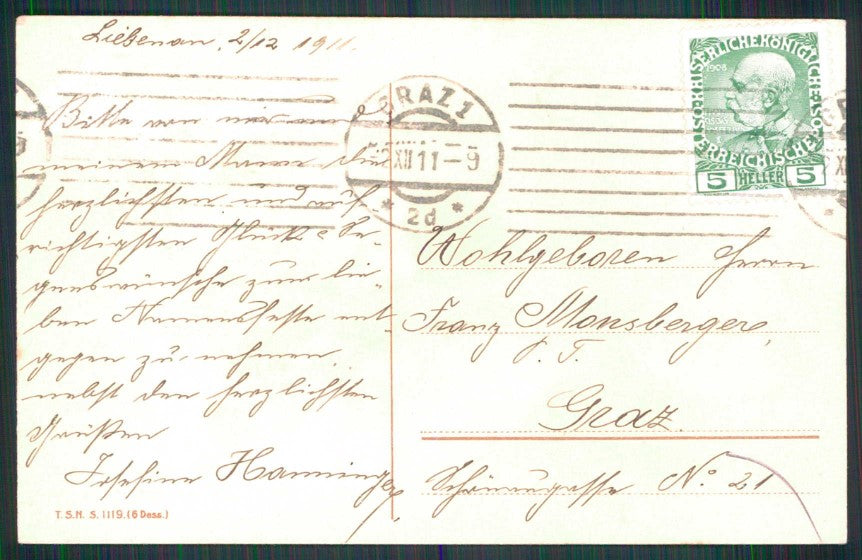 Liebenau, 2/12 1911.
Bitte von mir und
meinem Manne die
herzlichsten und auf-
richtigsten Glück & Se-
genswünsche zum lie-
ben Namensfeste ent-
gegen zu nehmen,
nebst den herzlichsten
Grüßen
Josefine Hanninger
T.S.N. S. 1119. (6 Dess.)
GRAZ 1
XII 11-9
* 2d *
KAISERLICHE KÖNIGLICHE
ÖSTERREICHISCHE
1908
5 HELLER 5
Wohlgeboren Herrn
Franz Monsberger,
P. T.
Graz.
Schönaugasse No. 21